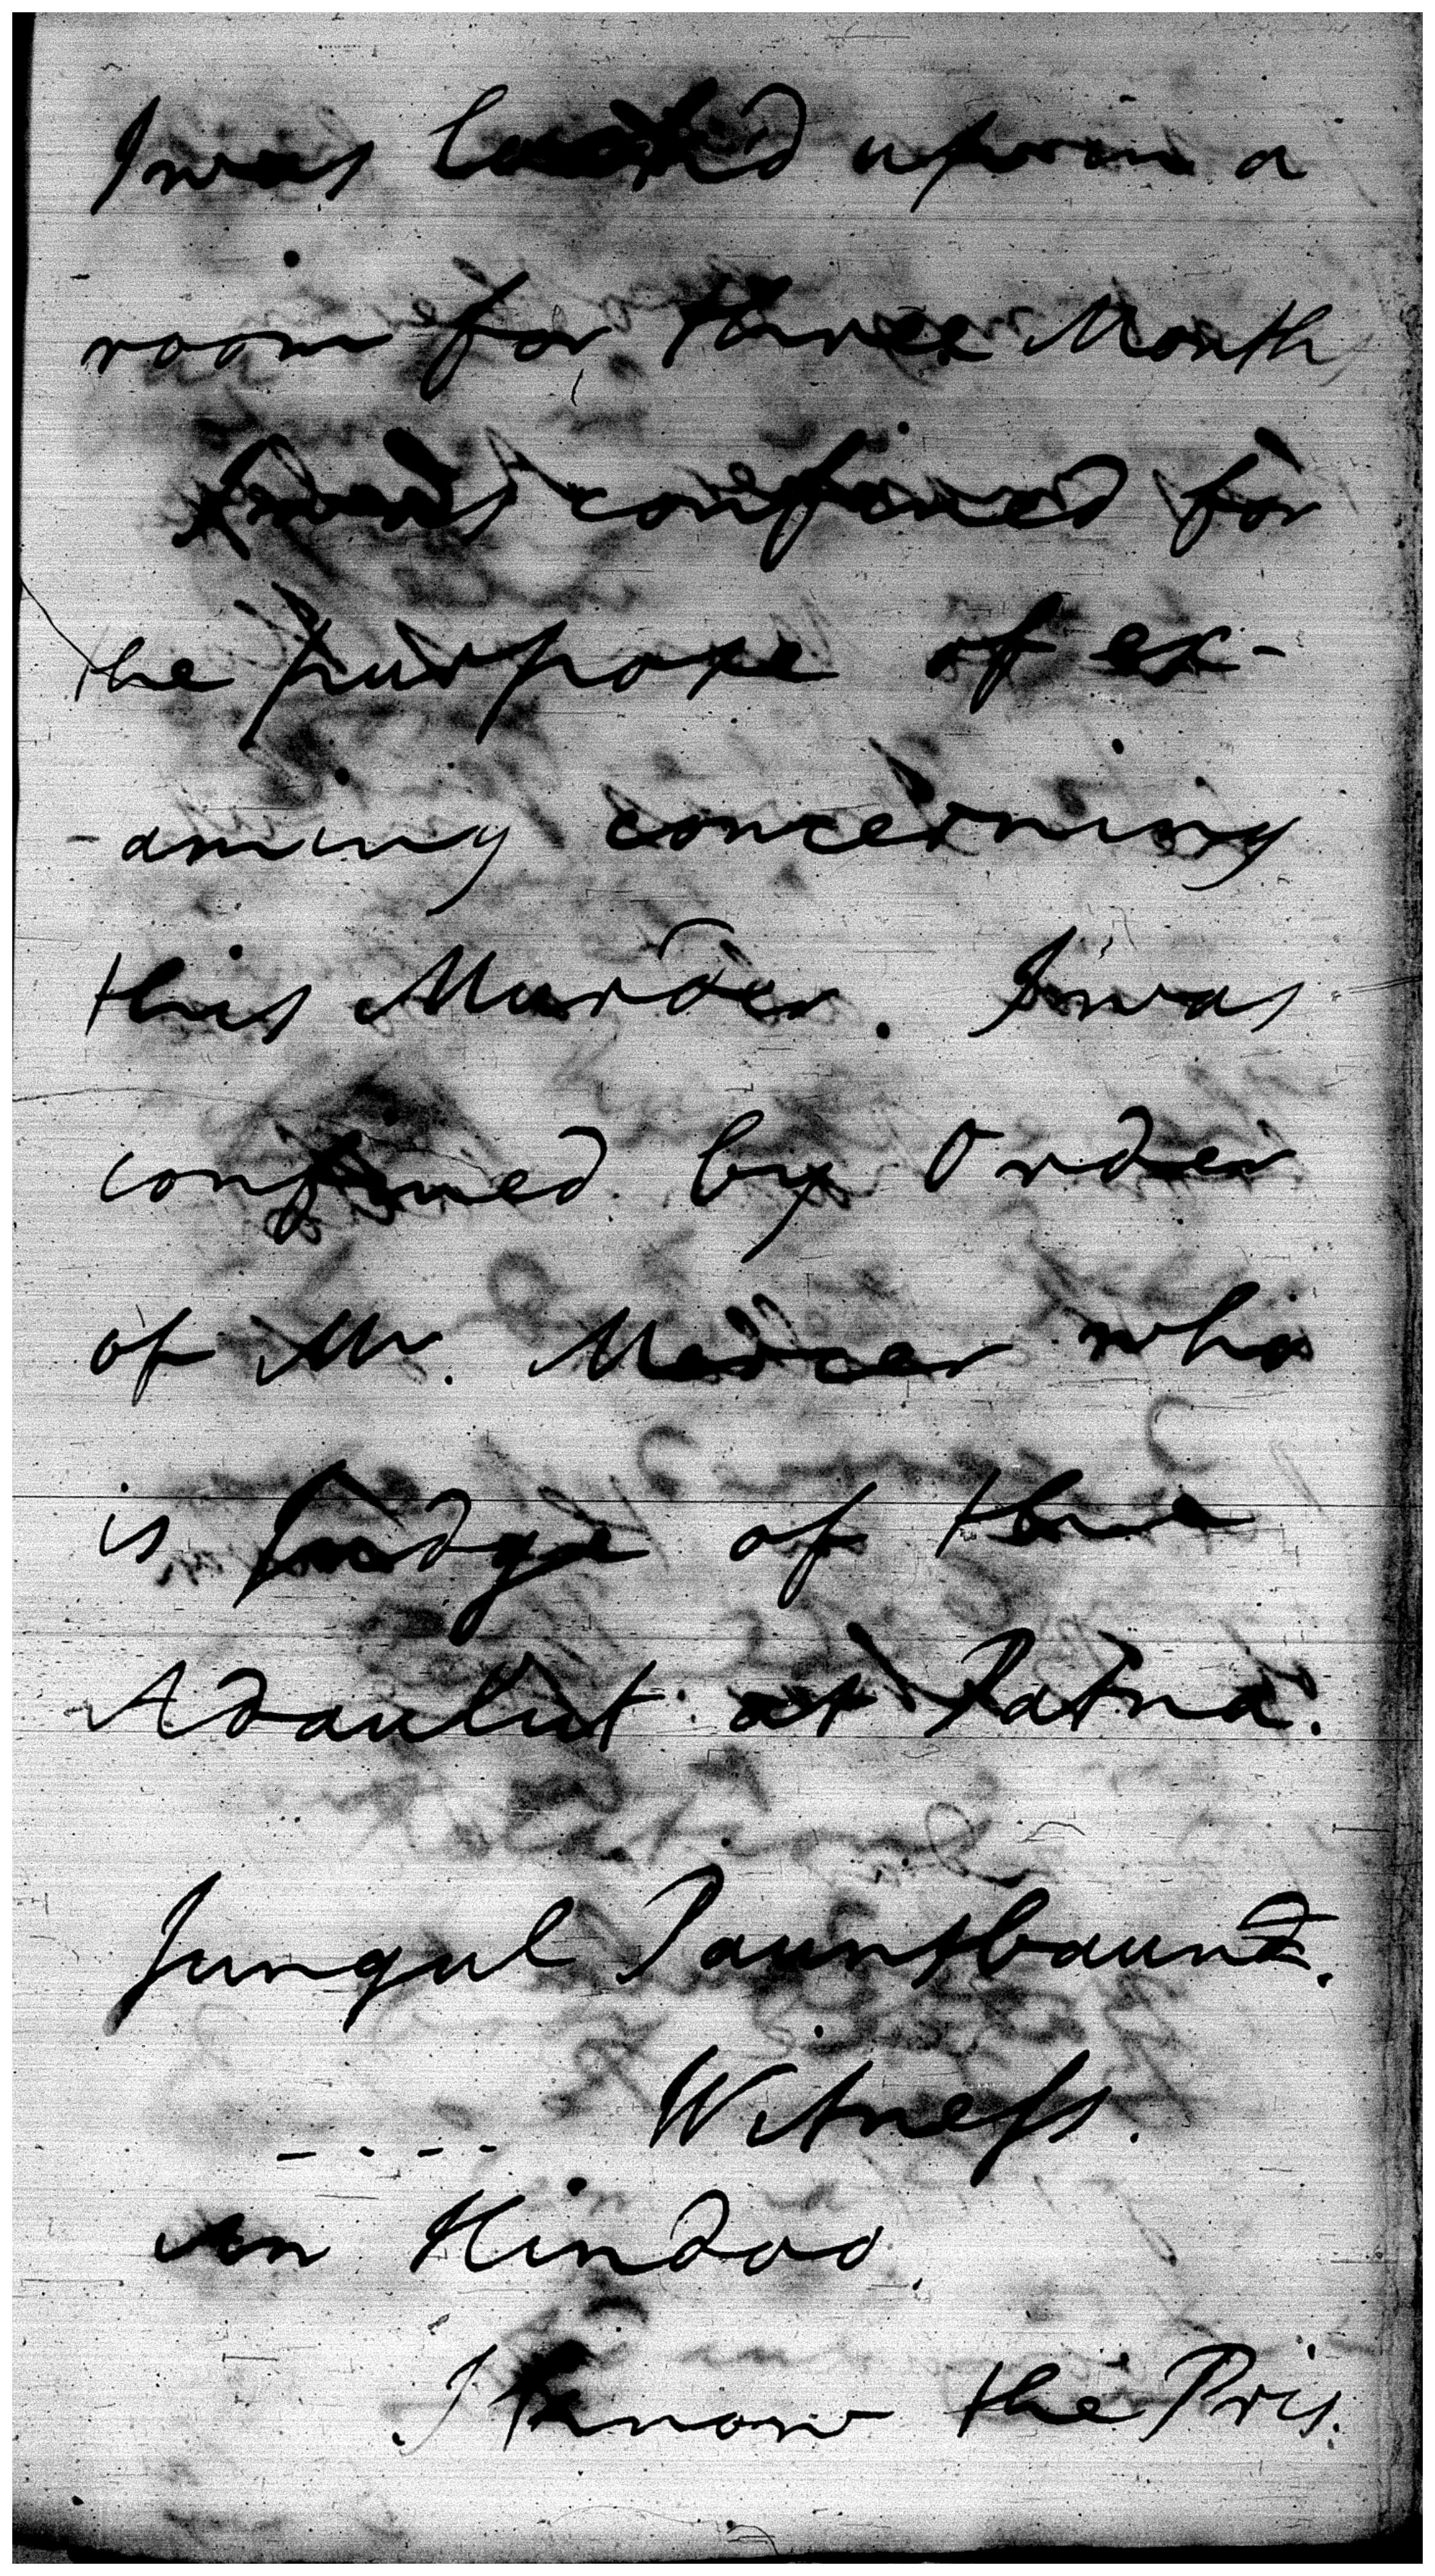 I was locked up in a
room for three Month
I was confined for
the purpose of ex-
-amining concerning
this Murder. I was
confined by Order
of Mr. Mercer who
is Judge of the
Adaulut at Patna.
Jungul Pauntbaund.
---- Witness.
an Hindoo.
I know the Pris.